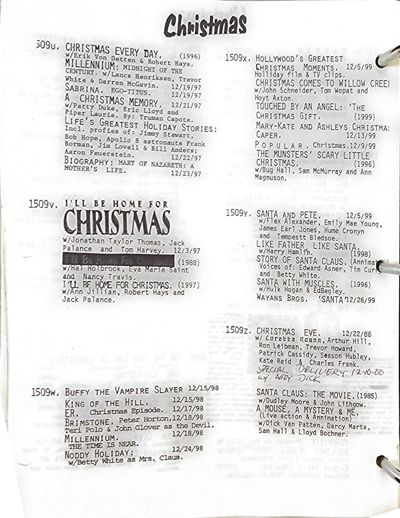 Christmas
1509u. CHRISTMAS EVERY DAY. (1996)
w/Erik Von Detten & Robert Hays.
MILLENNIUM: MIDNIGHT OF THE
CENTURY. w/Lance Henriksen, Trevor
White & Darren McGavin. 12/19/97
SABRINA. EGO-TITUS. 12/19/97
A CHRISTMAS MEMORY. 12/21/97
w/Patty Duke, Eric Lloyd and
Piper Laurie. By: Truman Capote.
LIFE'S GREATEST HOLIDAY STORIES:
Incl. profies of: Jimmy Stewart,
Bob Hope, Apollo 8 astronauts Frank
Borman, Jim Lovell & Bill Anders;
Aaron Feuerstein. 12/22/97
BIOGRAPHY: MARY OF NAZARETH: A
MOTHER'S LIFE. 12/23/97
1509v. I'LL BE HOME FOR
CHRISTMAS
w/Jonathan Taylor Thomas, Jack
Palance and Tom Harvey. 12/3/97
(1988)
w/Hal Holbrook, Eva Marie Saint
and Nancy Travis.
I'LL BE HOME FOR CHRISTMAS. (1997)
w/Ann Jillian, Robert Hays and
Jack Palance.
1509w. BUFFY THE VAMPIRE SLAYER 12/15/98
KING OF THE HILL. 12/15/98
ER. Christmas Episode. 12/17/98
BRIMSTONE. Peter Horton, 12/18/98
Teri Polo & John Glover as the Devil.
MILLENNIUM. 12/18/98
THE TIME IS NEAR.
NODDY HOLIDAY; 12/24/98
w/Betty White as Mrs. Claus.
1509x. HOLLYWOOD'S GREATEST
CHRISTMAS MOMENTS. 12/5/99
Holliday film & TV clips.
CHRISTMAS COMES TO WILLOW CREEK
w/John Schneider, Tom Wopat and
Hoyt Axton.
TOUCHED BY AN ANGEL: 'THE
CHRISTMAS GIFT. (1999)
MARY-KATE AND ASHLEYS CHRISTMAS
CAPER. 12/13/99
POPULAR. Christmas. 12/9/99
THE MUNSTERS' SCARY LITTLE
CHRISTMAS. (1996)
w/Bug Hall, Sam McMurray and Ann
Magnuson.
1509y. SANTA AND PETE. 12/5/99
w/Flex Alexander, Emily Mae Young,
James Earl Jones, Hume Cronyn
and Tempestt Bledsoe.
LIKE FATHER, LIKE SANTA.
w/Harry Hamlin. (1998)
STORY OF SANTA CLAUS. (Animat
Voices of: Edward Asner, Tim Curr
and Betty White.
SANTA WITH MUSCLES. (1996)
w/Hulk Hogan & EdBegley.
WAYANS BROS. 'SANTA' 12/26/99
1509z. CHRISTMAS EVE. 12/22/86
w/ Loretta Young, Arthur Hill,
Ron Leibman, Trevor Howard,
Patrick Cassidy, Season Hubley,
Kate Reid & Charles Frank.
SPECIAL DELIVERY 12-10-00
w/ ANDY DICK
SANTA CLAUS: THE MOVIE. (1985)
w/Dudley Moore & John Lithgow.
A MOUSE, A MYSTERY & ME,
(Live action & Animation)
w/Dick Van Patten, Darcy Marta,
Sam Hall & Lloyd Bochner.